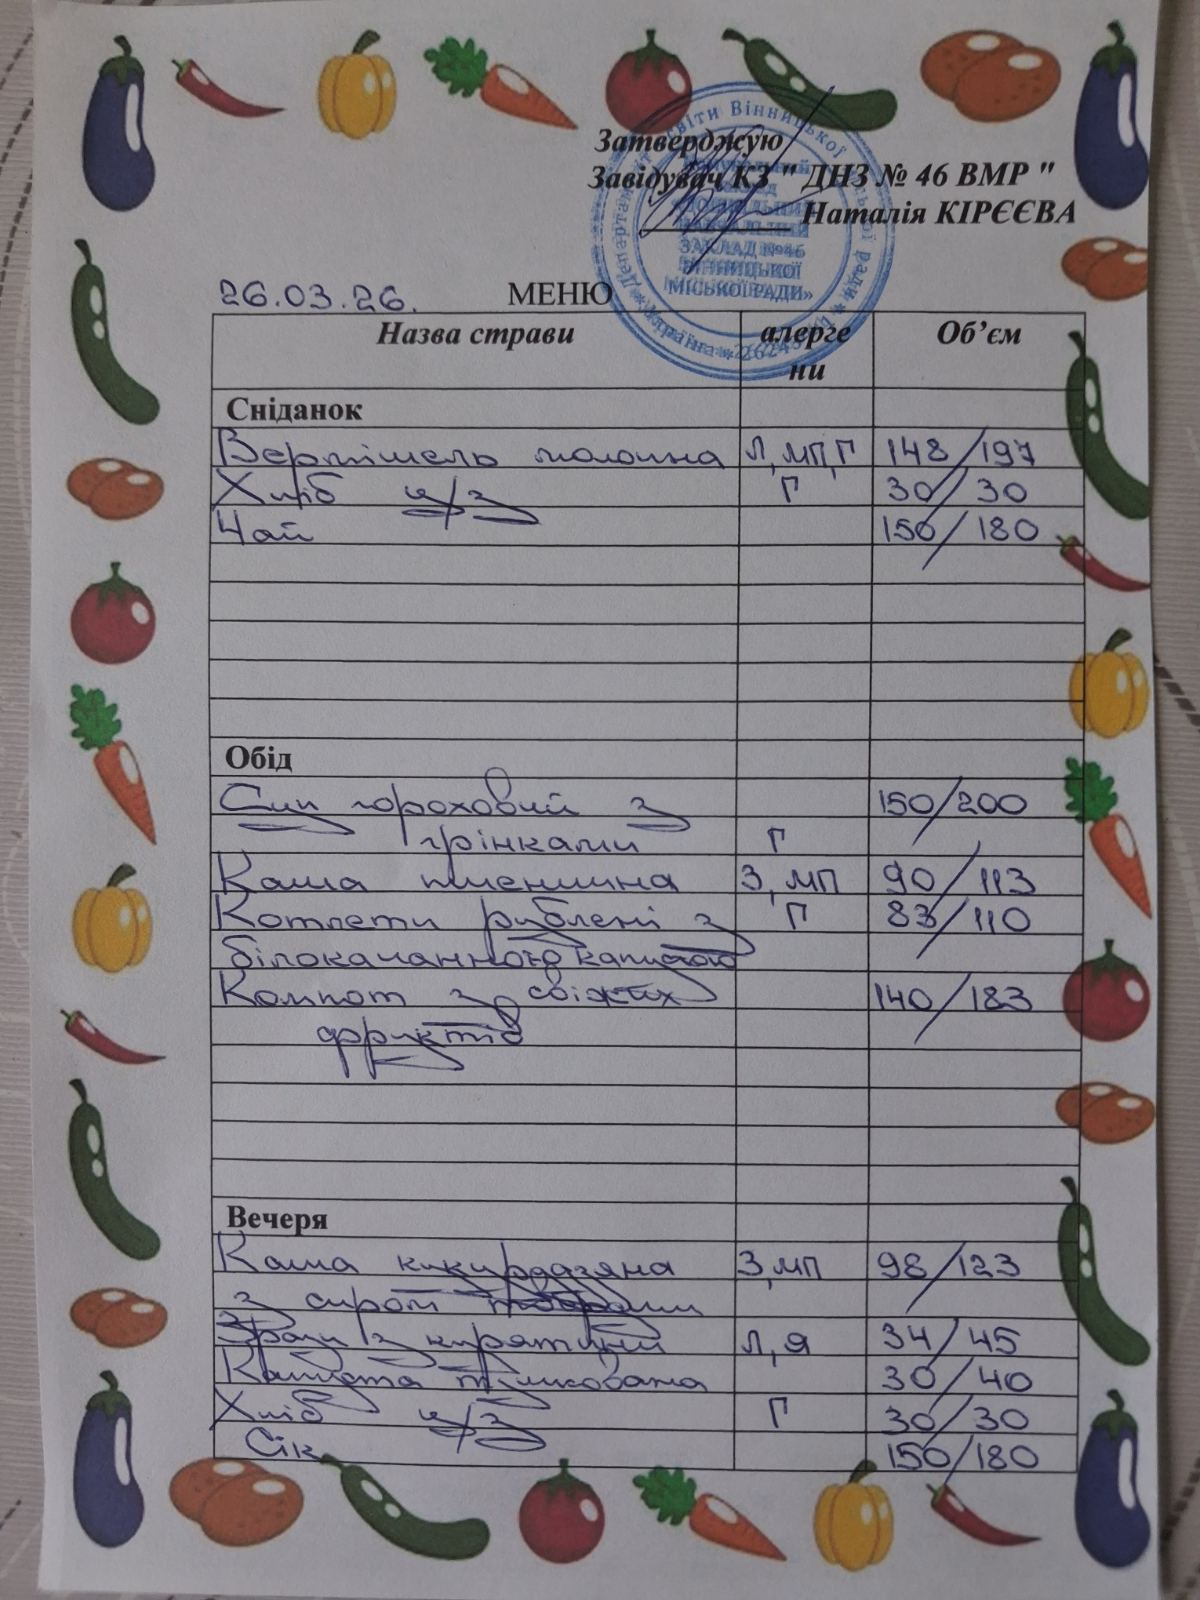 Затверджую
Завідувач КЗ " ДНЗ № 46 ВМР "
Наталія КІРЄЄВА
26.03.26. МЕНЮ
Назва страви алерге Об’єм
ни
Сніданок
Вермішель молочна Л,МП,Г 148/197
Хліб ц/з Г 30/30
Чай 150/180
Обід
Суп гороховий з 150/200
грінками Г
Каша пшенична З, МП 90/113
Котлети рублені з Г 83/110
білокачанною капустою
Компот з свіжих 140/183
фруктів
Вечеря
Каша кукурудзяна З,МП 98/123
з сиром твердим
Зрази з курятини Л,Я 34/45
Капуста тушкована 30/40
Хліб ц/з Г 30/30
Сік 150/180
ЗАКЛАД №46
ВІННИЦЬКОЇ
МІСЬКОЇ РАДИ»